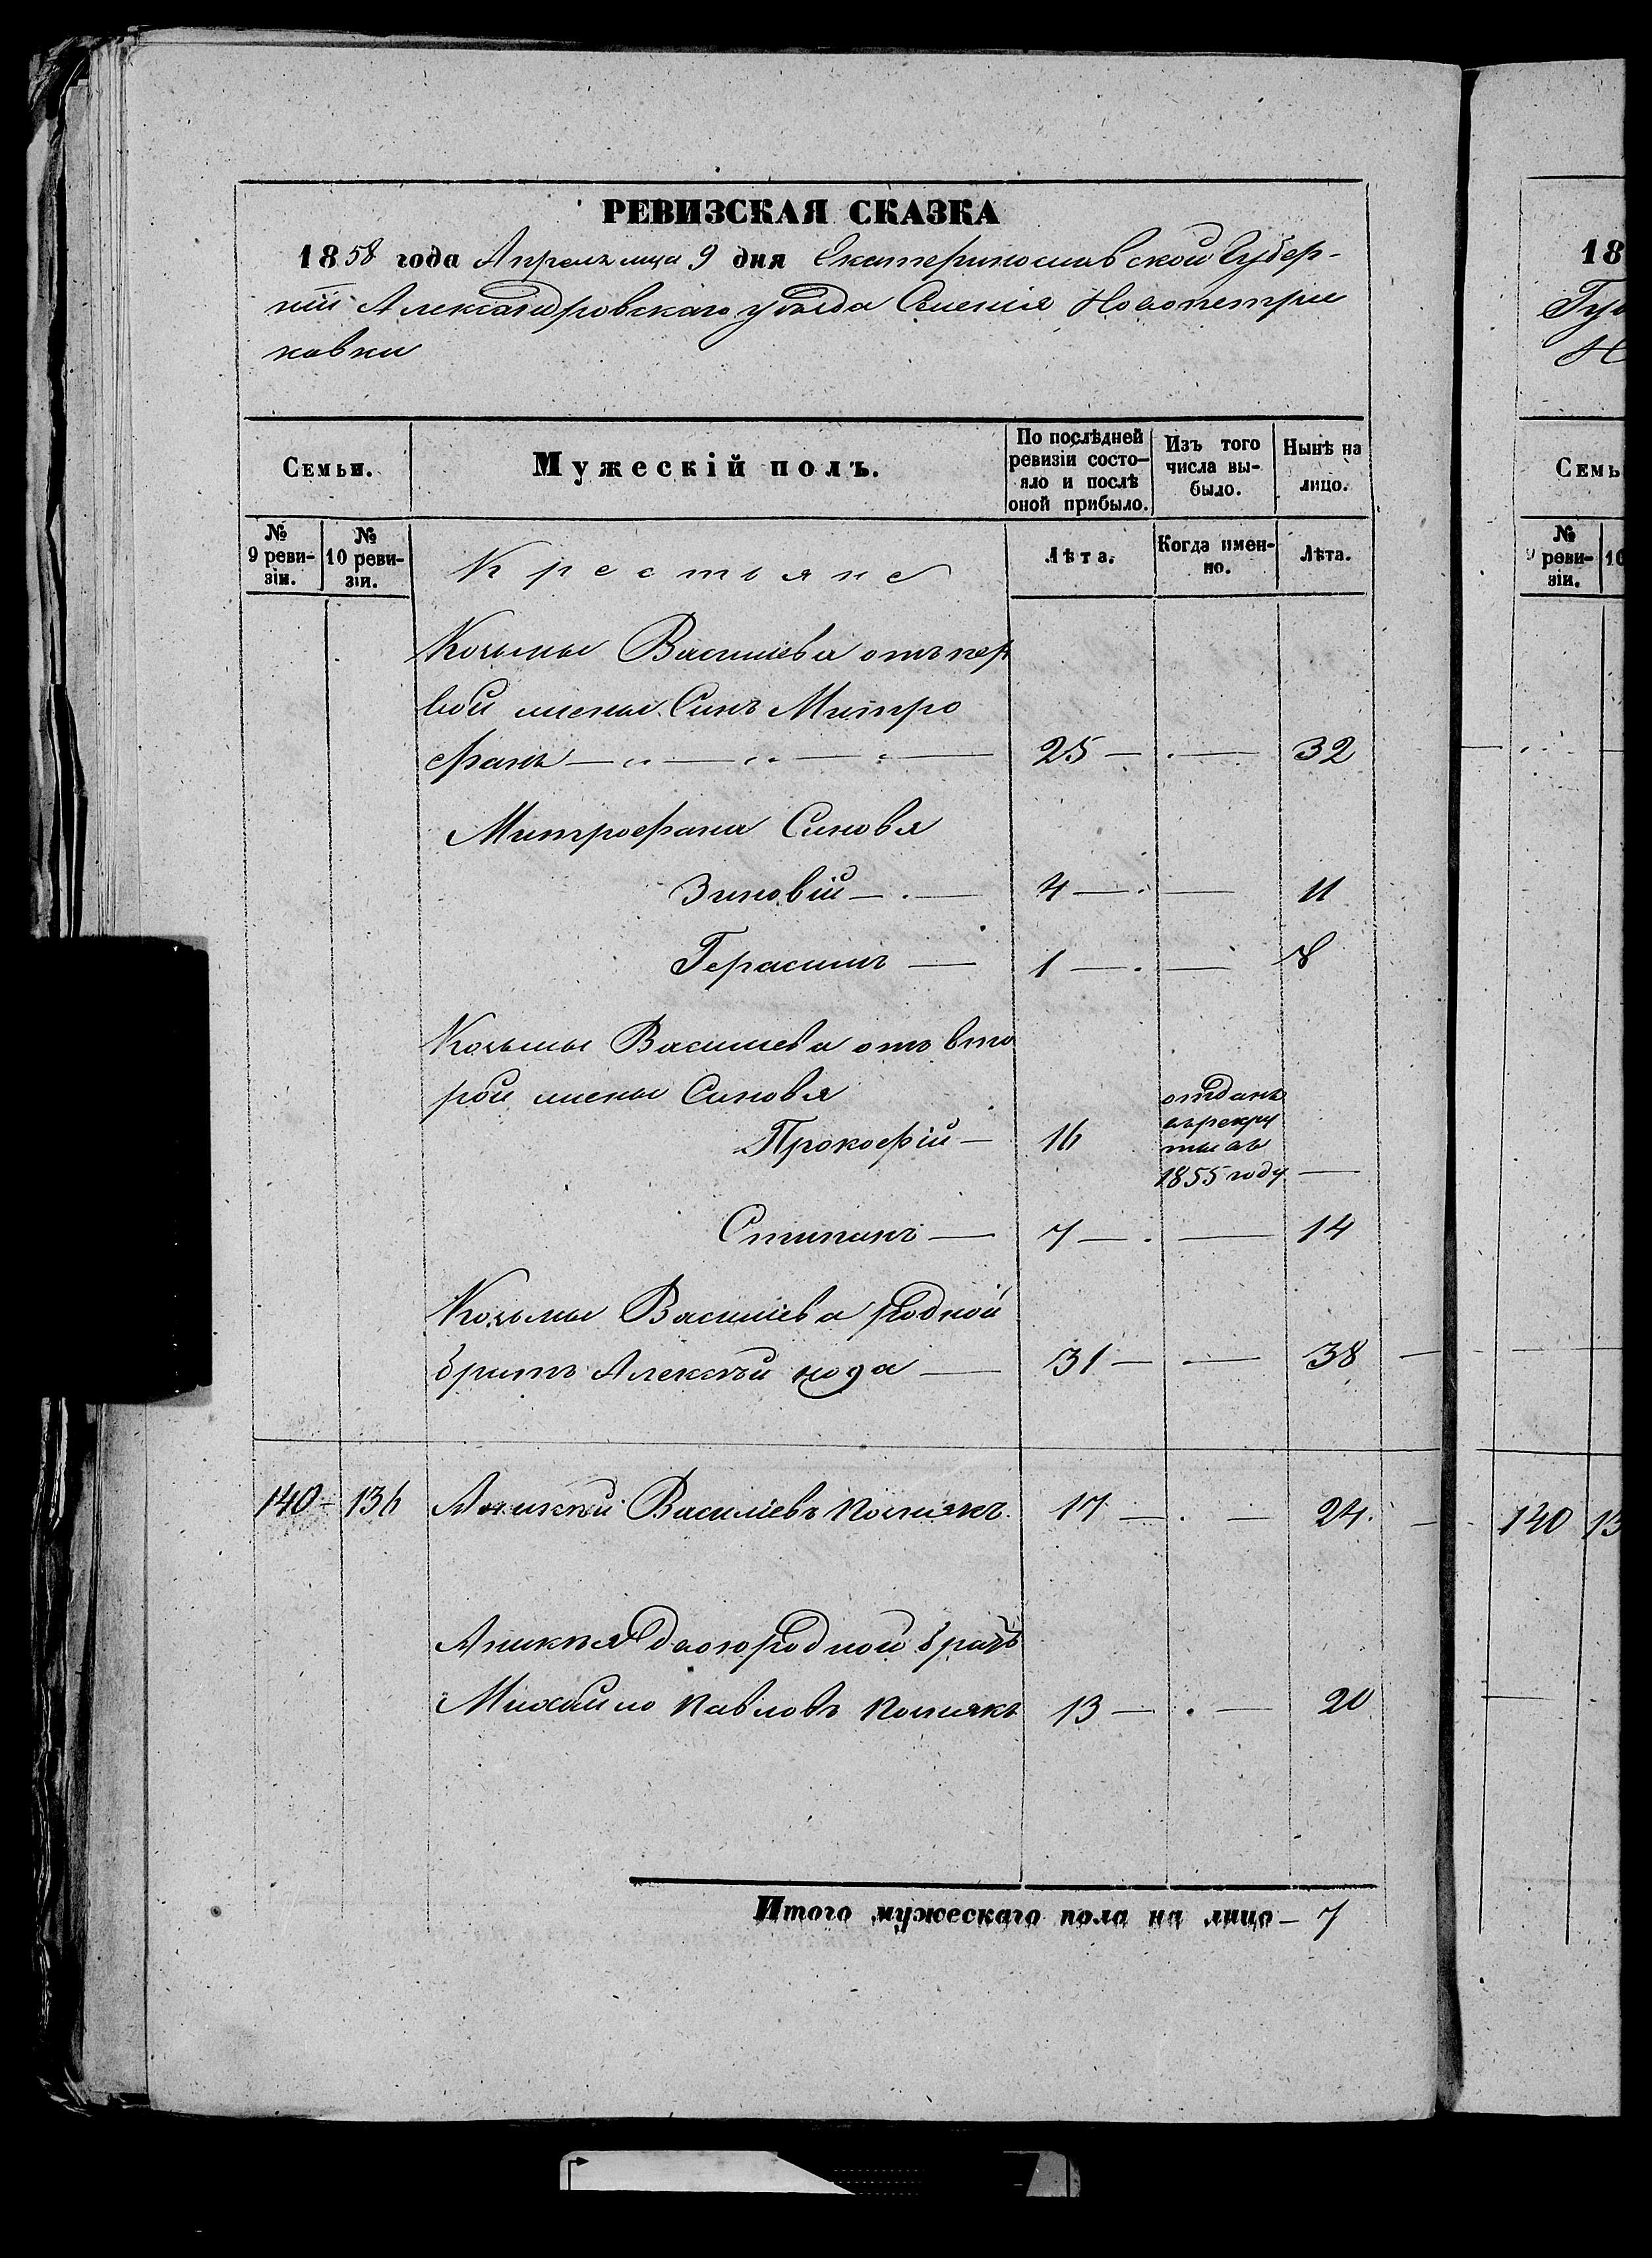 РЕВИЗСКАЯ СКАЗКА
1858 года Апреля мца 9 дня Екатеринославской Губер-
нии Александровскаго уѣзда Селенія Новопетри
ковки
Семьи.
Мужескій полъ.
По послѣдней ревизіи состо-яло и послѣ оной прибыло.
Изъ того числа вы-было.
Нынѣ на лицо.
№ 9 реви-зіи.
№ 10 реви-зіи.
Крестьяне
Лѣта.
Когда имен-но.
Лѣта.
Козьмы Василіева отъ пер
вой жены Синъ Митро
фанъ — 25 — 32
Митрофана Синовя
Зиновій — 4 — 11
Герасимъ — 1 — 8
Козьмы Василіева отъ вто
рой жены Синовя
Прокофій — 16
отданъ
въ рекру
ты въ
1855 году —
Стипанъ — 7 — 14
Козьмы Василіева родной
братъ Алексѣй — 31 — 38
140 - 136 Аникѣй Василіевъ 17 — 24
Аникѣя двоюродной братъ
Михайло Павловъ 13 — 20
Итого мужескаго пола на лицо — 7
18
Семь
№ 9 реви-зіи.
140 13